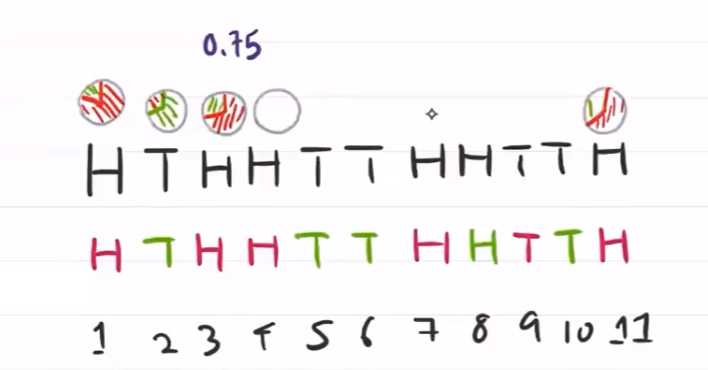 0.75
H T H H T T H H T T H
H T H H T T H H T T H
1 2 3 4 5 6 7 8 9 10 11